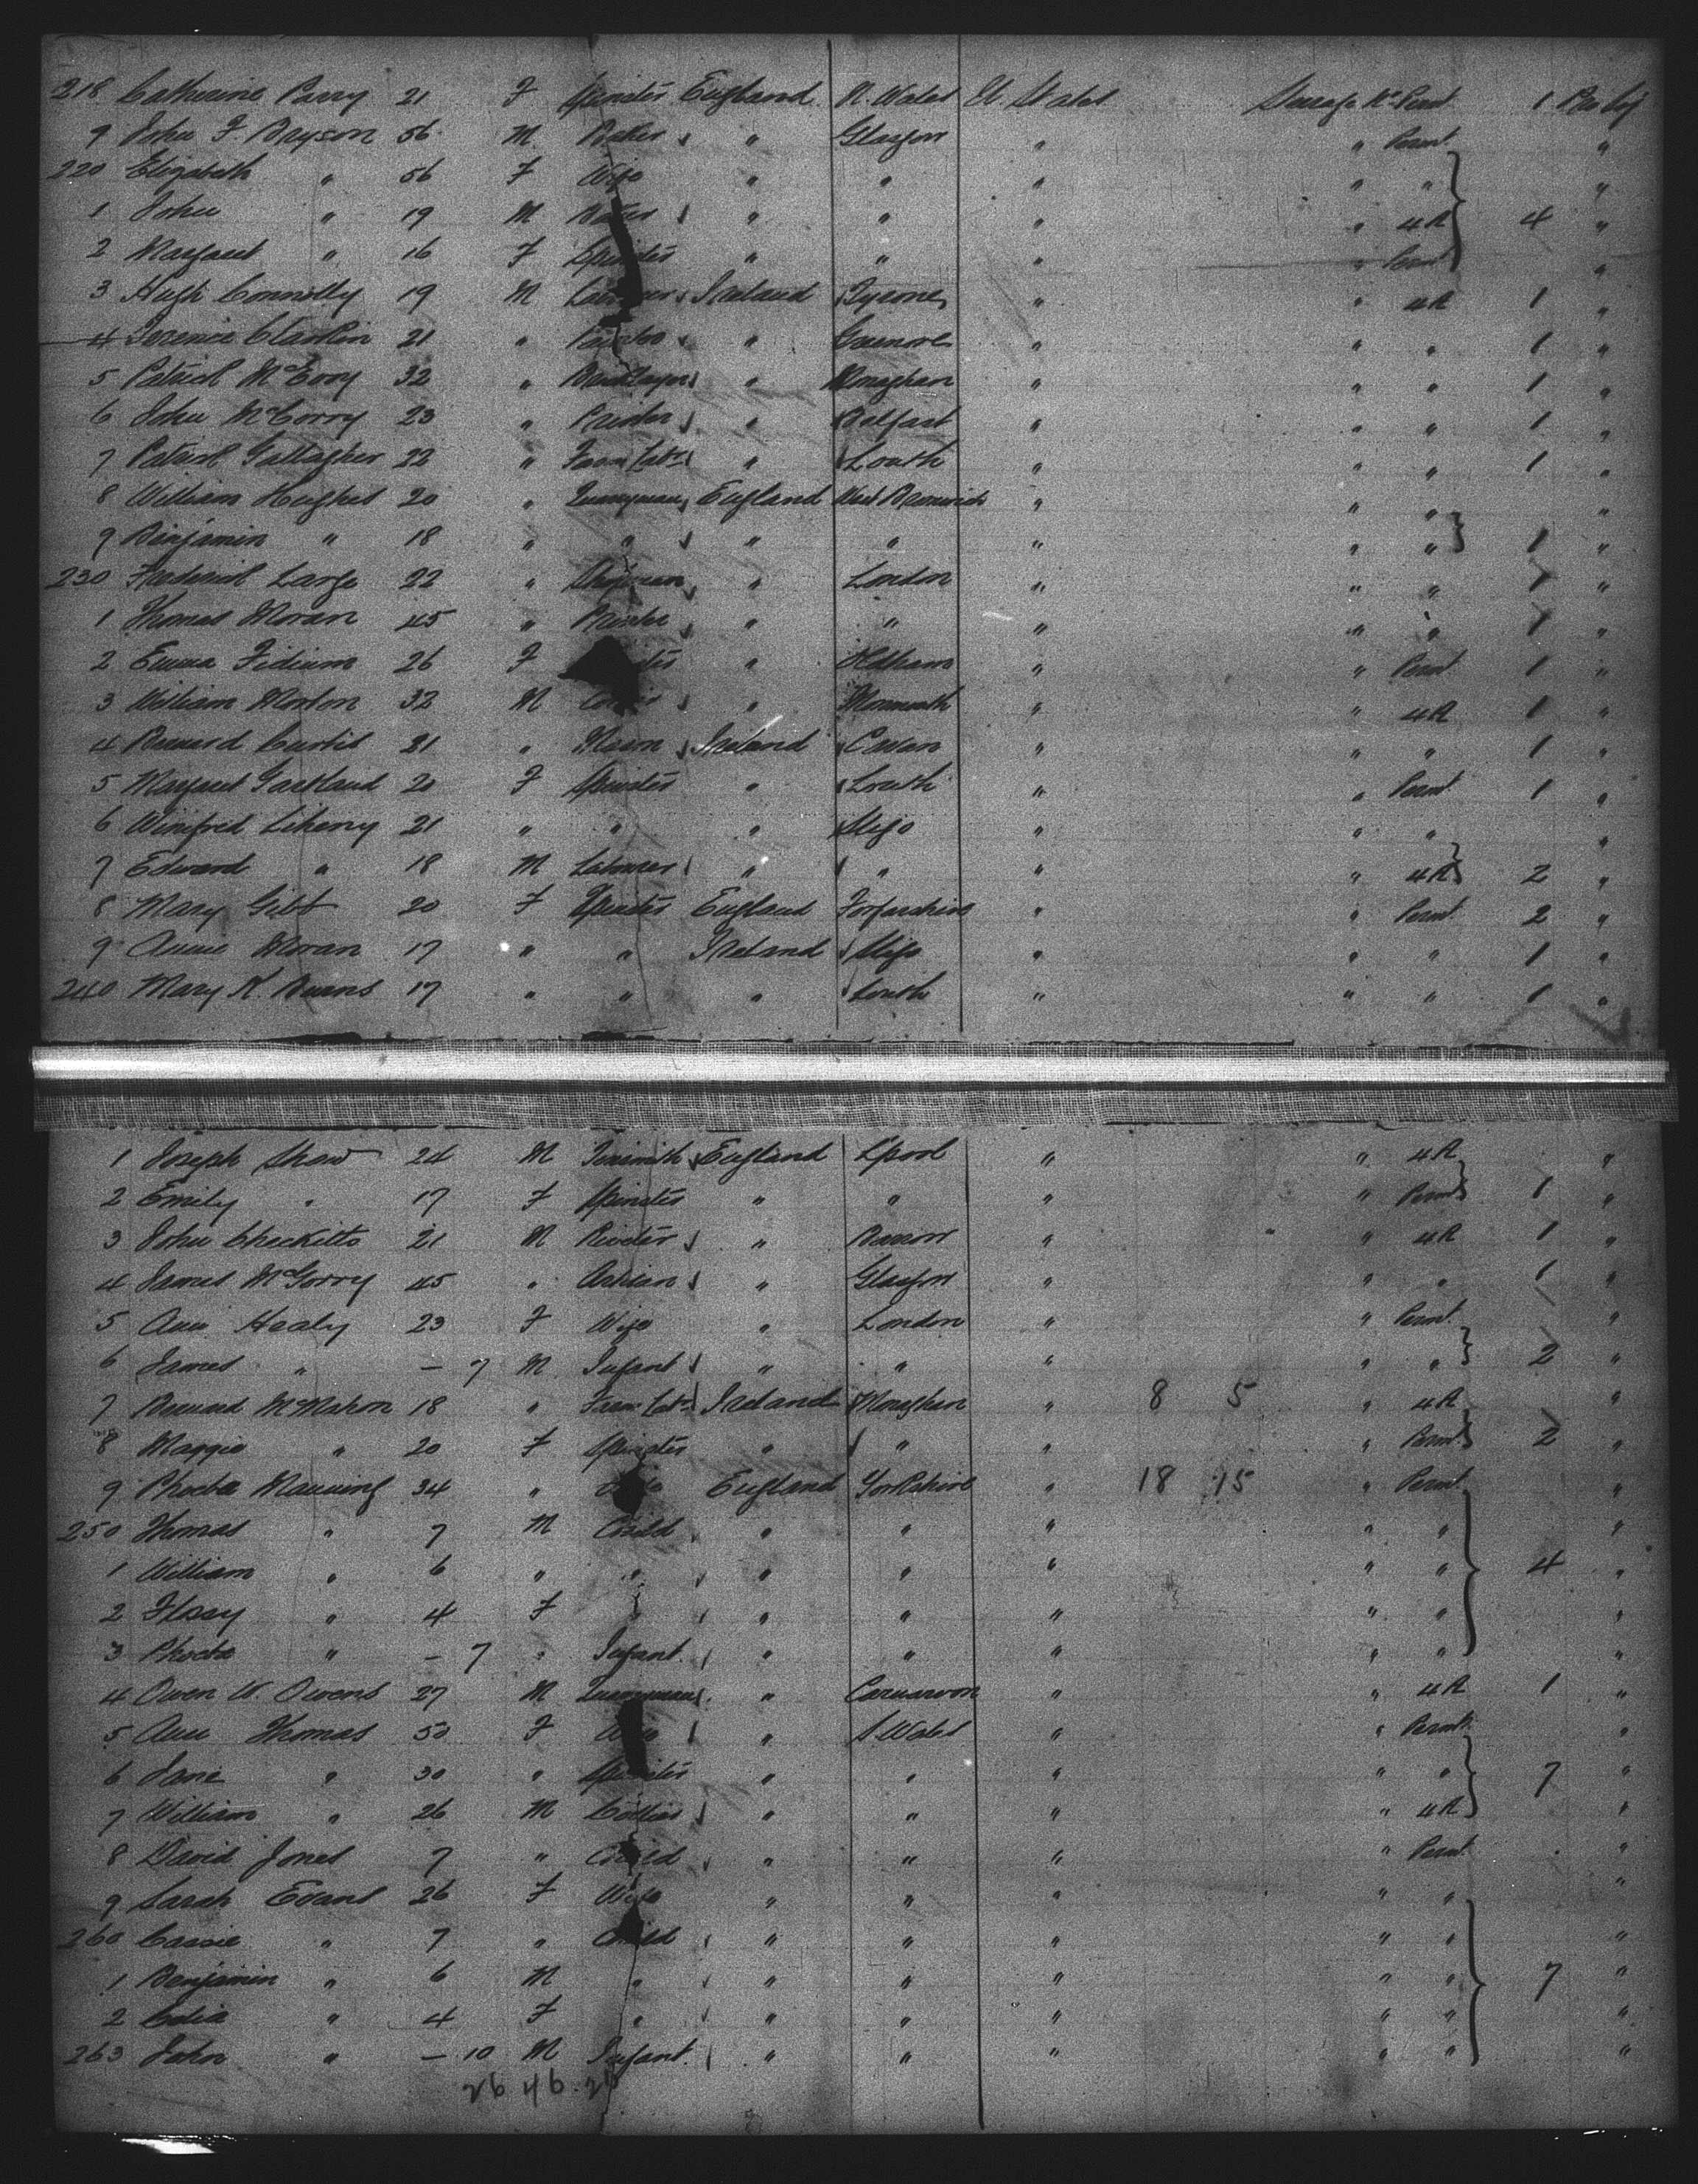 218 Catherine Parry 21 F Spinster England N. Wales U. States Steerage Per't 1
9 John F Bryson 56 M Baker " Glasgow " " Perm't "
220 Elizabeth " 56 F Wife " " " " " "
1 John " 19 M " " " " 4R 4 "
2 Margaret " 16 F Spinster " " " " Perm't "
3 Hugh Connolly 19 M Labourer Ireland Tyrone " " 4R 1 "
4 Terence Clarkin 21 " " Greenore " " " 1 "
5 Patrick McEvoy 32 " Bricklayer " Monaghan " " " 1 "
6 John McCorry 23 " Printer " Belfast " " " 1 "
7 Patrick Gallagher 22 " Farm Labr " Louth " " " 1 "
8 William Hughes 20 " Quarryman England West Bromwich " " " "
9 Benjamin " 18 " " " " " " " 1 "
230 Frederick Large 22 " " London " " " 1 "
1 Thomas Moran 45 " " " " " " 1 "
2 Emma 26 F " Oldham " " Perm't 1 "
3 William Morton 32 M " Monmouth " " 4R 1 "
4 Bernard Curtis 21 " Mason Ireland Cavan " " " 1 "
5 Margaret Gartland 20 F Spinster " Louth " " Perm't 1 "
6 Winifred 21 " " " Sligo " " " "
7 Edward " 18 M Labourer " " " " 4R 2 "
8 Mary Gibb 20 F Spinster England Forfarshire " " Perm't 2 "
9 Annie Moran 17 " " Ireland Sligo " " " 1 "
240 Mary K. Burns 17 " " " Louth " " " 1 "
1 Joseph Shaw 24 M Tinsmith England Lpool " " 4R "
2 Emily " 17 F Spinster " " " " Perm't 1 "
3 John Checkitts 21 M Riveter " Barrow " " 4R 1 "
4 James McGorry 45 " Artisan " Glasgow " " " 1 "
5 Ann Healy 23 F Wife " London " " Perm't "
6 James " — 7 M Infant " " " " " 2 "
7 Bernard McMahon 18 " Farm Labr Ireland Monaghan " 8 5 " 4R "
8 Maggie " 20 F Spinster " " " " Perm't 2 "
9 Phoebe Manning 34 " England Yorkshire " 18 15 " Perm't "
250 Thomas " 7 M Child " " " " " "
1 William " 6 " " " " " " " 4 "
2 Flossy " 4 F " " " " " " "
3 Phoebe " — 7 " Infant " " " " " "
4 Owen W. Owens 27 M Quarryman " Carnarvon " " 4R 1 "
5 Ann Thomas 50 F Wife " S Wales " " Perm't "
6 Jane " 30 " Spinster " " " " " 7 "
7 William " 26 M Collier " " " " 4R "
8 David Jones 7 " Child " " " " Perm't "
9 Sarah Evans 26 F Wife " " " " " "
260 Cassie " 7 " Child " " " " " "
1 Benjamin " 6 M " " " " " " 7 "
2 Celia " 4 F " " " " " " "
263 John " — 10 M Infant " " " " " "
26 46